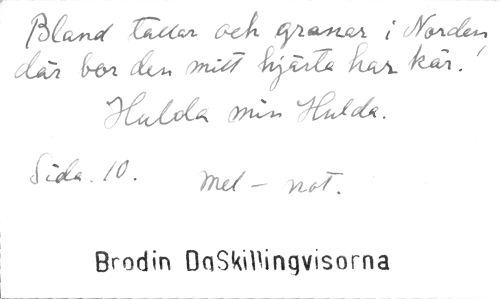 Bland tallar och granar i Norden
där bor den mitt hjärta har kär!
Hulda min Hulda.
Sida. 10. mel - not.
Brodin DaSkillingvisorna